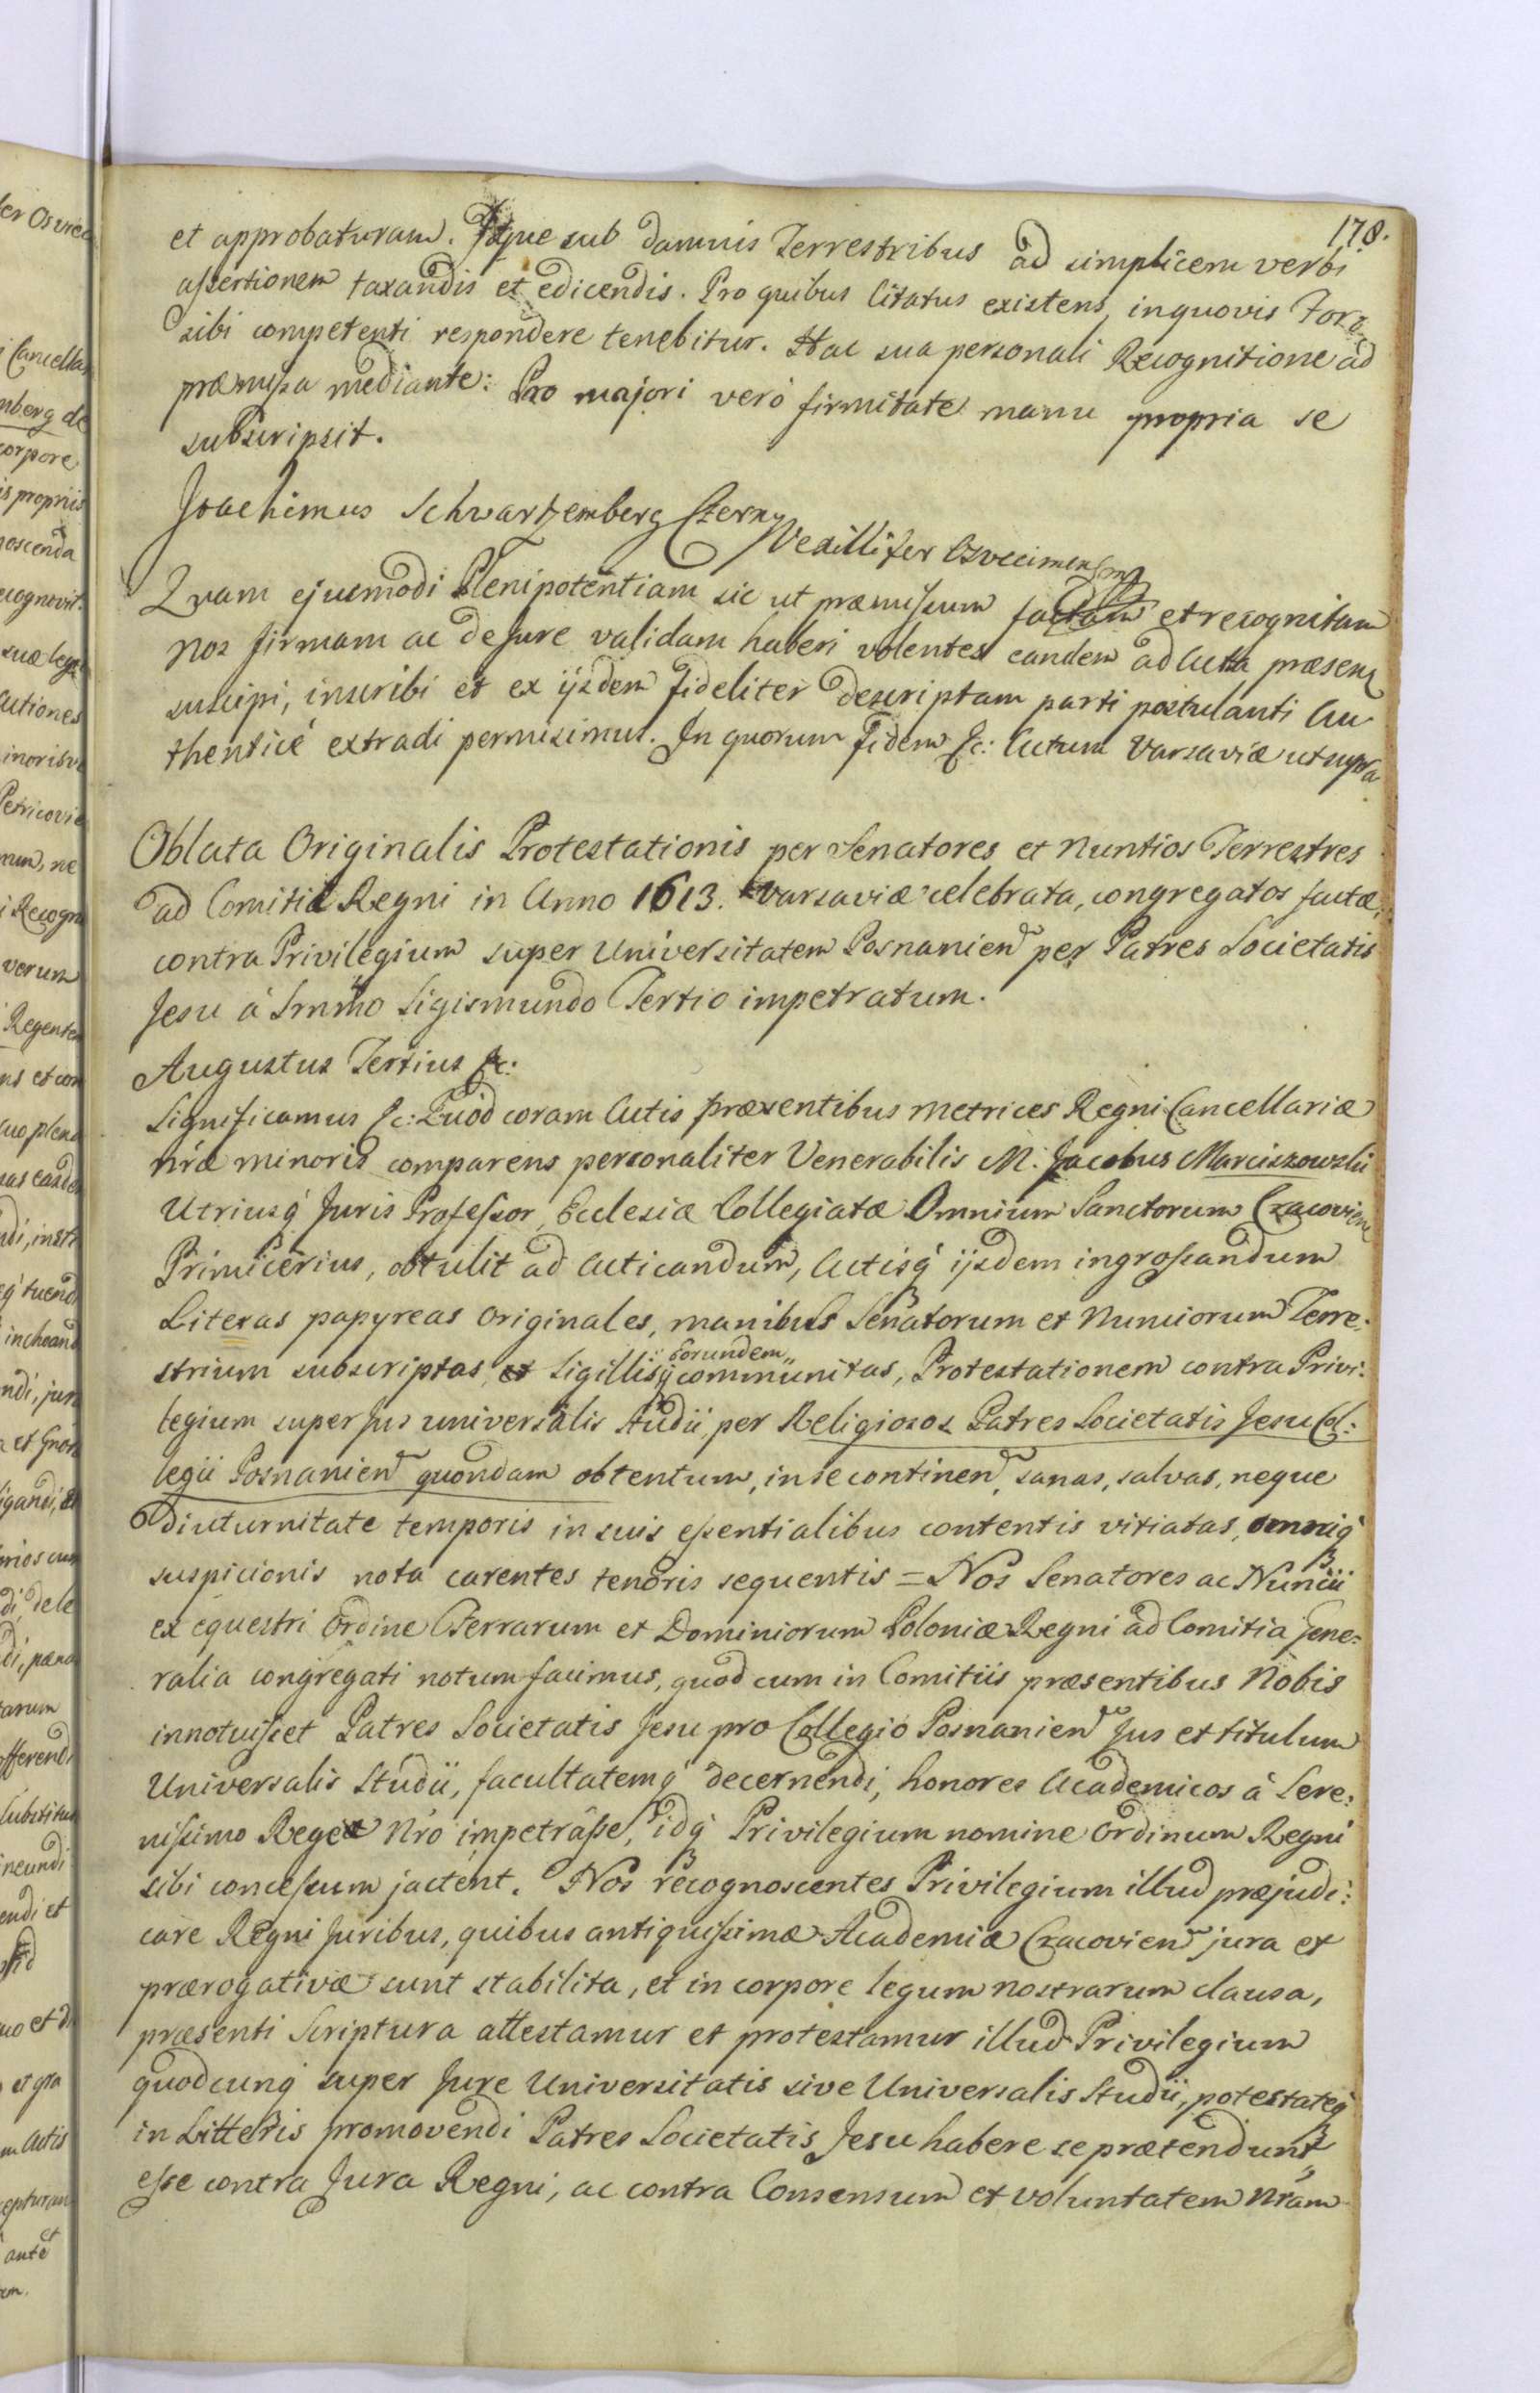 178.
et approbaturam. Idque sub damnis Terrestribus ad simplicem verbi
assertionem taxandis et edicendis. Pro quibus citatus existens, in quovis Foro
sibi competenti respondere tenebitur. Hac sua personali Recognitione ad
præmissa mediante: Pro majori verò firmitate manu propria se
subscripsit.
Joachimus Schwartzemberg Czerny
Vexillifer Osvecimensis mp
Quam ejusmodi Plenipotentiam sic ut præmissum factam et recognitam
nos firmam ac de Jure validam haberi volentes eandem ad Acta præsens
suscipi, inscribi et ex ijsdem fideliter descriptam parti postulanti Au
thenticè extradi permisimus. In quorum fidem &c: Actum Varsaviæ ut supra
Oblata Originalis Protestationis per Senatores et Nuntios Terrestres
ad Comitia Regni in Anno 1613. Varsaviæ celebrata, congregatos factæ,
contra Privilegium super Universitatem Posnanien per Patres Societatis
Jesu à Srmmo Sigismundo Tertio impetratum.
Augustus Tertius &c:
Significamus &c: Quòd coram Actis præsentibus Metrices Regni Cancellariæ
nræ minoris comparens personaliter Venerabilis M. Jacobus Marciszowski
Utriusq́ Juris Professor, Ecclesiæ Collegiatæ Omnium Sanctorum Cracovien
Primicerius, obtulit ad Acticandum, Actisq́ ijsdem ingrossandum
Literas papyreas originales, manibus Senatorum et Nunciorum Terre:
eorundem
strium subscriptas, et Sigillisq́ communitas, Protestationem contra Privi:
legium super Jus universalis Studii, per Religiosos Patres Societatis Jesu Col:
legii Posnanien quondam obtentum, in se continen, sanas, salvas, neque
diuturnitate temporis in suis essentialibus contentis vitiatas, omniq́
suspicionis nota carentes tenoris sequentis = Nos Senatores ac Nuncii
ex equestri Ordine Terrarum et Dominiorum Poloniæ Regni ad Comitia Gene:
ralia congregati notum facimus, quod cum in Comitiis præsentibus Nobis
innotuisset Patres Societatis Jesu pro Collegio Posnanien Jus et titulum
Universalis Studii, facultatemq́ decernendi, honores Academicos à Sere:
nissimo Rege Nrô impetrâsse, idq́ Privilegium nomine Ordinum Regni
sibi concessum jactent. Nos recognoscentes Privilegium illud præjudi:
care Regni Juribus, quibus antiquissimæ Academiæ Cracovien jura et
prærogativæ sunt stabilita, et in corpore legum nostrarum clausa,
præsenti Scriptura attestamur et protestamur illud Privilegium
quodcunq́ super Jure Universitatis sive Universalis Studii, potestateq́
in Litteris promovendi Patres Societatis Jesu habere se prætendunt,
esse contra Jura Regni, ac contra Consensum et voluntatem nrám